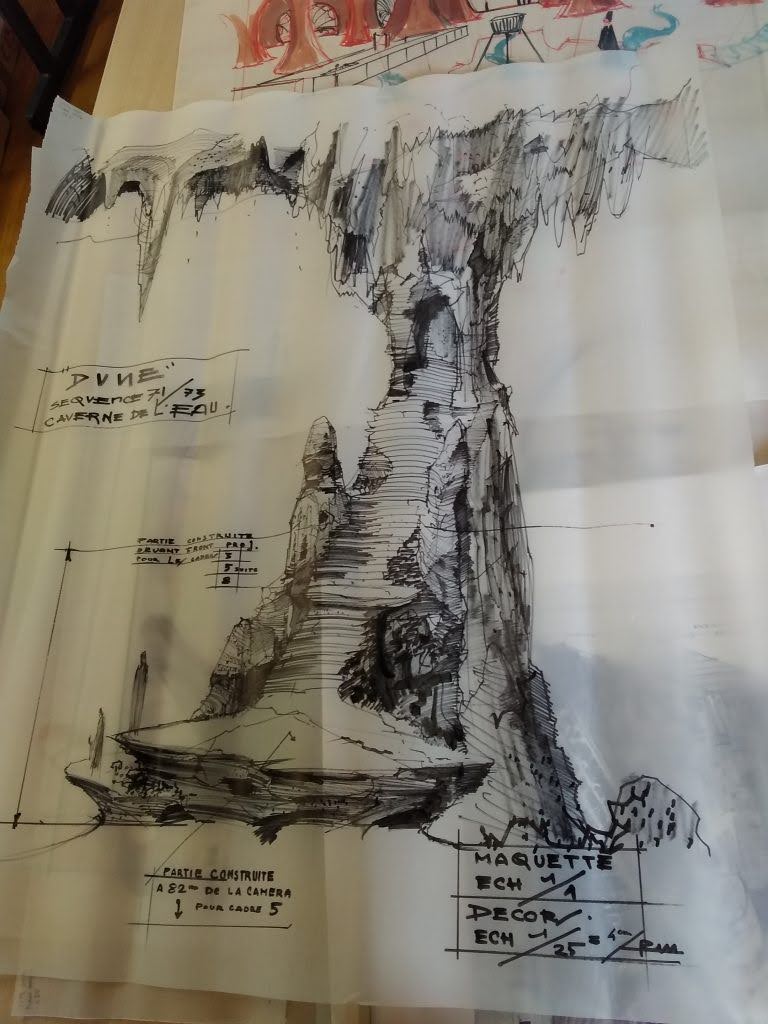 "DUNE"
SEQUENCE 71/73
CAVERNE DE L'EAU.
PARTIE CONSTRUITE
DEVANT FRONT PROJ.
POUR LE CADRE 3
5 SUITE
8
PARTIE CONSTRUITE
A 82 DE LA CAMERA
↓ POUR CADRE 5
MAQUETTE
ECH 1/1
DECOR.
ECH 1/25 = 4cm/P.M